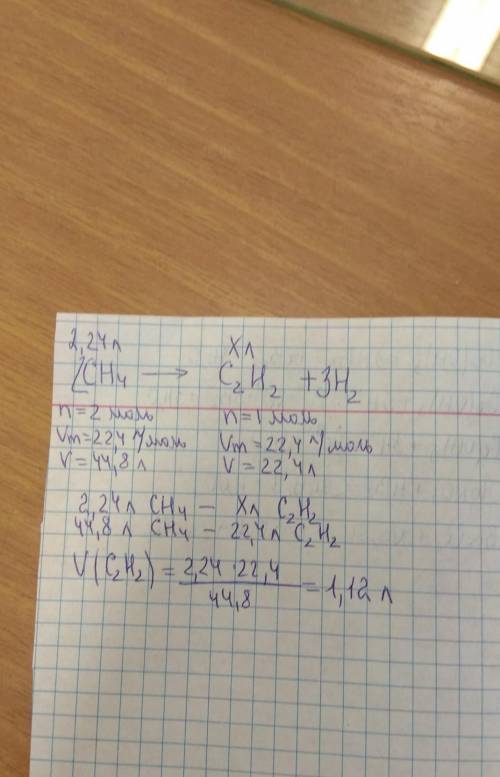 2,24л Xл
2CH₄ → C₂H₂ + 3H₂
n=2 моль n=1 моль
Vm=22,4 л/моль Vm=22,4 л/моль
V=44,8 л V=22,4 л
2,24л CH₄ – Xл C₂H₂
44,8л CH₄ – 22,4л C₂H₂
V(C₂H₂) = 2,24·22,4 / 44,8 = 1,12 л